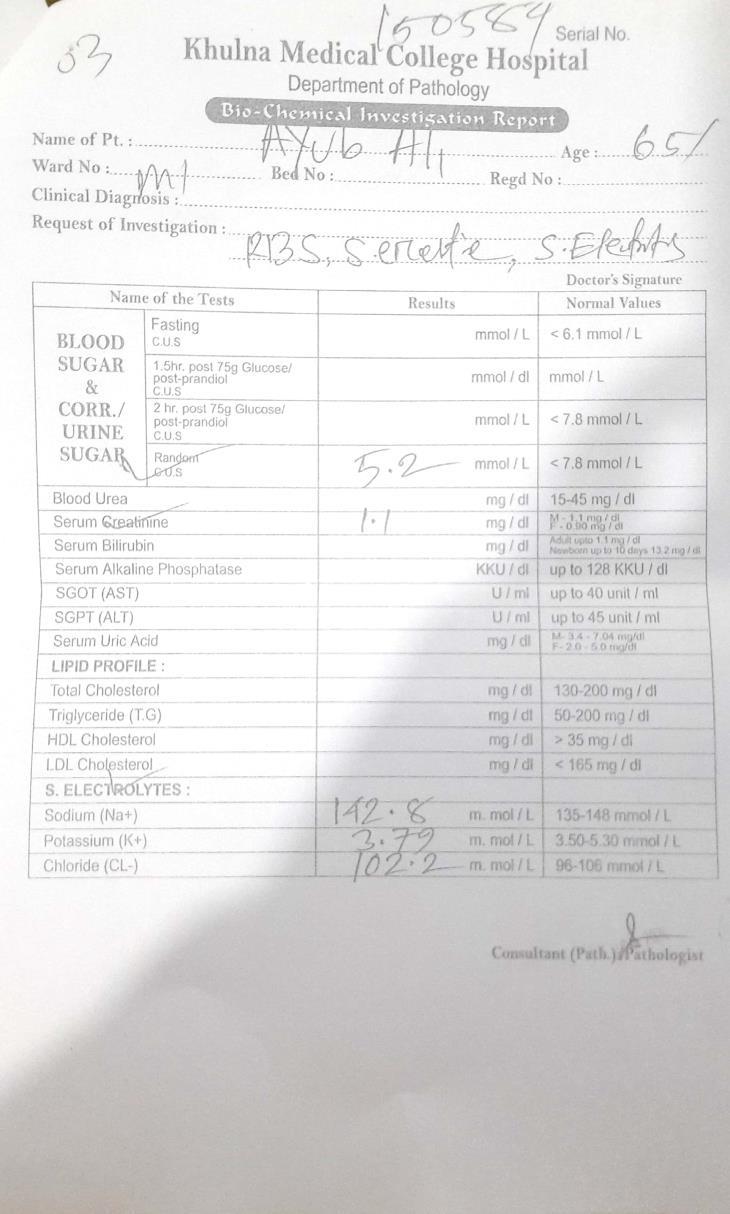 150584 Serial No.
33
Khulna Medical College Hospital
Department of Pathology
Bio-Chemical Investigation Report
Name of Pt. : Ayub Ali Age : 65/
Ward No : Bed No : Regd No :
Clinical Diagnosis :
Request of Investigation :
RBS, S. , S.
Doctor's Signature
Name of the Tests Results Normal Values
BLOOD SUGAR & CORR./ URINE SUGAR
Fasting C.U.S mmol / L < 6.1 mmol / L
1.5hr. post 75g Glucose/ post-prandiol C.U.S mmol / dl mmol / L
2 hr. post 75g Glucose/ post-prandiol C.U.S mmol / L < 7.8 mmol / L
Random C.U.S 5.2 mmol / L < 7.8 mmol / L
Blood Urea mg / dl 15-45 mg / dl
Serum Creatinine 1.1 mg / dl M - 1.1 mg / dl F - 0.90 mg / dl
Serum Bilirubin mg / dl Adult upto 1.1 mg / dl Newborn up to 10 days 13.2 mg / dl
Serum Alkaline Phosphatase KKU / dl up to 128 KKU / dl
SGOT (AST) U / ml up to 40 unit / ml
SGPT (ALT) U / ml up to 45 unit / ml
Serum Uric Acid mg / dl M- 3.4 - 7.04 mg/dl F- 2.0 - 5.0 mg/dl
LIPID PROFILE :
Total Cholesterol mg / dl 130-200 mg / dl
Triglyceride (T.G) mg / dl 50-200 mg / dl
HDL Cholesterol mg / dl > 35 mg / dl
LDL Cholesterol mg / dl < 165 mg / dl
S. ELECTROLYTES :
Sodium (Na+) 142.8 m. mol / L 135-148 mmol / L
Potassium (K+) 3.79 m. mol / L 3.50-5.30 mmol / L
Chloride (CL-) 102.2 m. mol / L 96-106 mmol / L
Consultant (Path.)/Pathologist